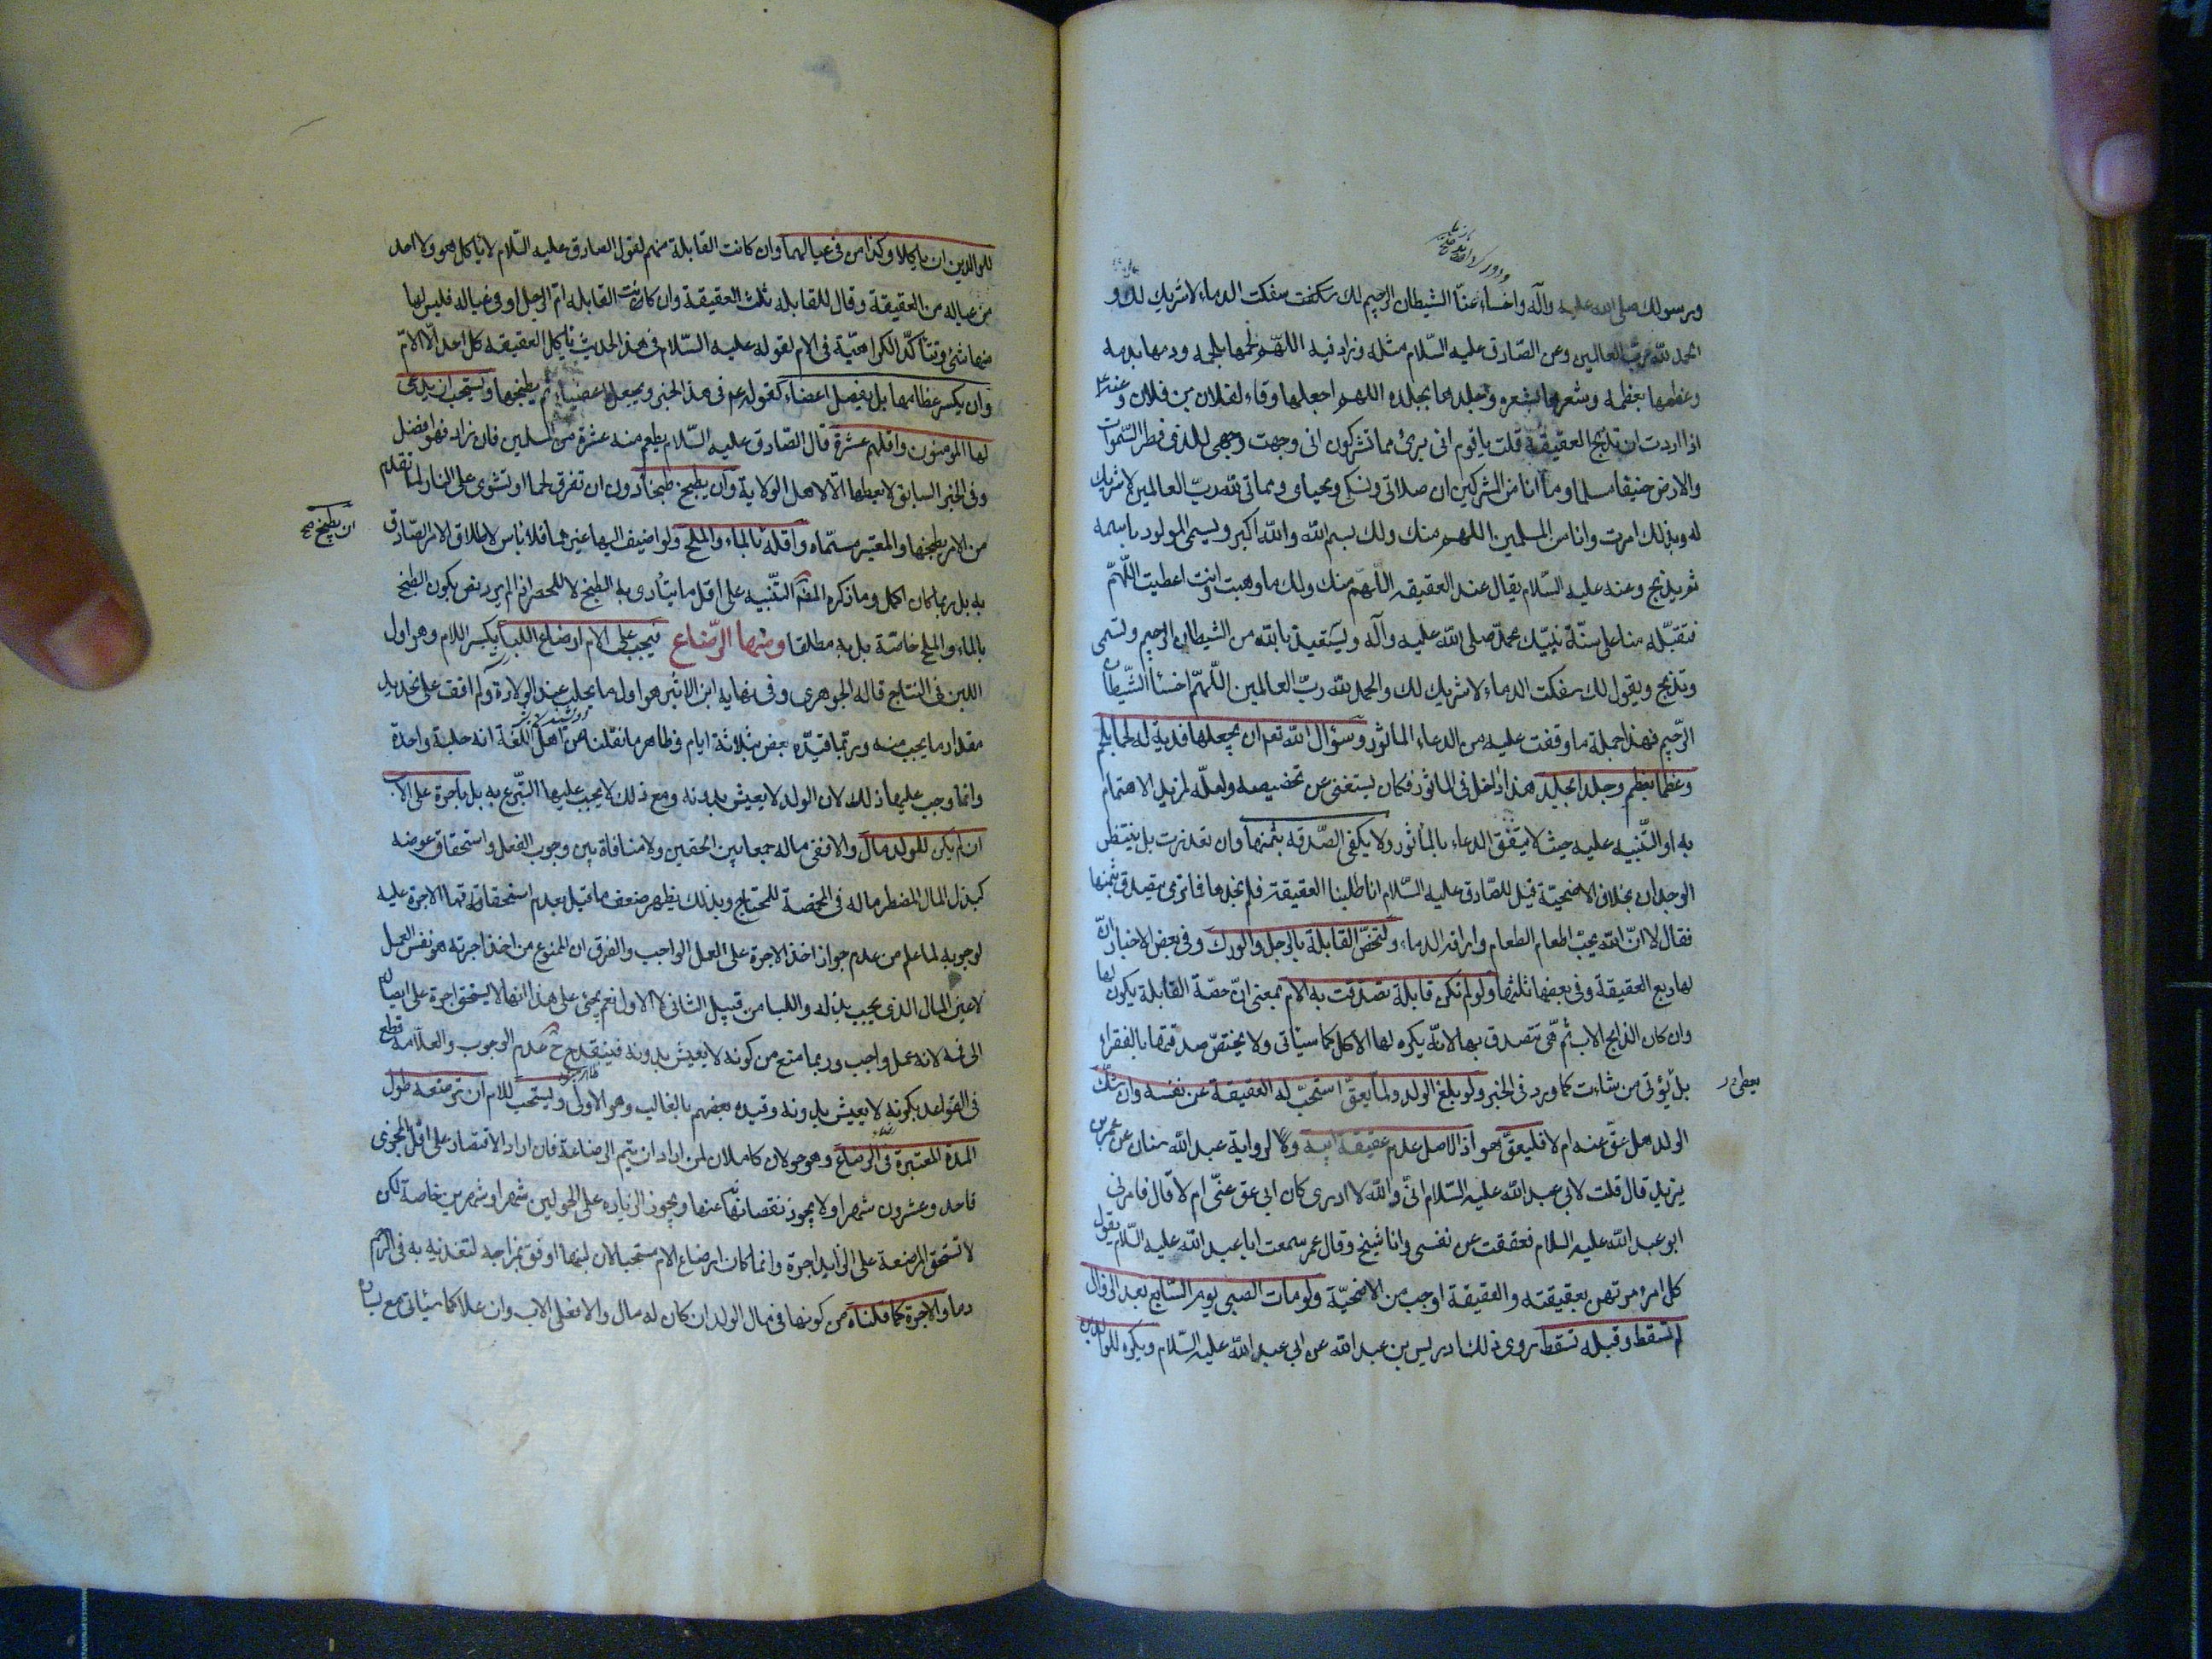 ورسولك صلى الله عليه وآله واخساء عنّا الشيطان الرجيم لك سفكت الدماء لا شريك لك و
الحمد للّه ربّ العالمين وعن الصّادق عليه السّلام مثله وزاد فيه اللهّم لحمها بلحمه ودمها بدمه
وعظمها بعظمه وشعرها بشعره وجلدها بجلده اللهم اجعلها وقاء لفلان بن فلان وعنه ع
اذا اردت ان تذبح العقيقة قلت يا قوم انى برئ مما تشركون انى وجهت وجهى للذى فطر السّموات
والارض حنيفا مسلما وما انا من المشركين ان صلاتى ونسكى ومحياى ومماتى للّه ربّ العالمين لا شريك
له وبذلك امرت وانا من المسلمين اللهم منك ولك بسم اللّه واللّه اكبر ويسمى المولود باسمه
ثم يذبح وعنه عليه السّلام يقال عند العقيقه اللّهمّ منك ولك ما وهبت وانت اعطيت اللّهمّ
فتقبّله منا على سنّة نبيّك محمد صلى اللّه عليه وآله ويستعيذ باللّه من الشيطان الرجيم وتسمى
وتذبح ويقول لك سفكت الدماء لا شريك لك والحمد للّه ربّ العالمين اللّهمّ اخسأ الشّيطان
الرّجيم فهذا جملة ما وقفت عليه من الدعاء المأثور وسؤال اللّه تع ان يجعلها فدية له لحما بلحم
وعظما بعظم وجلدا بجلد هذا داخل فى الماثور فكان يستغنى عن تخصيصه ولعلّه لمزيد الاهتمام
به او التّنبيه عليه حيث لا يتفق الدعاء بالمأثور ولا يكفى الصّدقة بثمنها وان تعذرت بل ينتظر
الوجدان بخلاف الاضحيّة قيل للصّادق عليه السّلام انا طلبنا العقيقة فلم نجدها فما ترى نتصدق بثمنها
فقال لا انّ اللّه يحبّ اطعام الطعام واراقة الدماء ولتخصّ القابلة بالرجل والورك وفى بعض الاخبار انّ
لها ربع العقيقة وفى بعضها ثلثها ولو لم تكن قابلة تصدقت به الام بمعنى انّ حصّة القابلة يكون لها
وان كان الذابح الاب ثم هى تتصدق بها لانّه يكره لها الاكل كما سيأتى ولا يختصّ صدقتها بالفقراء
بل يؤتى من شاءت كما ورد فى الخبر ولو بلغ الولد ولمّا يعقّ استحبّ له العقيقة عن نفسه وان شكّ
يعطى
الولد هل عقّ عنه ام لا فليعقّ هو اذ الاصل عدم عقيقة ابيه ولرواية عبد اللّه بن سنان عن عمر بن
يزيد قال قلت لابى عبد اللّه عليه السّلام انىّ واللّه لا ادرى كان ابى عق عنّى ام لا قال فامرنى
ابو عبد اللّه عليه السلام فعققت عن نفسى وانا شيخ وقال عمر سمعت ابا عبد اللّه عليه السّلام يقول
كل امرئ مرتهن بعقيقته والعقيقة اوجب من الاضحيّة ولو مات الصبى يوم السّابع بعد الزوال
لم تسقط وقبله تسقط روى ذلك ادريس بن عبد اللّه عن ابى عبد اللّه عليه السّلام ويكره للوالدين
للوالدين ان ياكلا وكذا من فى عيالهما وان كانت القابلة منهم لقول الصادق عليه السّلام لا ياكل هو ولا احد
من عياله من العقيقة وقال للقابلة ثلث العقيقة وان كانت القابلة امّ الرجل او فى عياله فليس لها
منها شئ وتتأكّد الكراهيّة فى الام لقوله عليه السّلام فى هذا الحديث يأكل العقيقه كل احد الّا الامّ
وان يكسر عظامها بل يفصل اعضاء كقوله ع فى هذا الخبر ويجعل اعضاء ثم يطبخها ويستحب ان يدعى
لها المؤمنون واقلهم عشرة قال الصّادق عليه السّلام يطعم منه عشرة من المسلمين فان زاد فهو افضل
وفى الخبر السابق لا يعطيها الّا لاهل الولاية وان يطبخ طبخا دون ان تفرق لحما او تشوى على النار لما تقدم
من الامر بطبخها والمعتبر مسمّاه واقله بالماء والملح ولو اضيف اليها غيرهما فلا باس لاطلاق الامر الصّادق
ان يطبخ صح
به بل ربما كان اكمل وما ذكره المص التّنبيه على اقل ما يتأدى به الطبخ لا للحصر اذ لم يرد نص بكون الطبخ
بالماء والملح خاصّة بل به مطلقا ومنها الرّضاع فيجب على الام ارضاع اللبأ بكسر اللام وهو اول
اللبن فى النتاج قاله الجوهرى وفى نهاية ابن الاثير هو اول ما يحلب عند الولادة ولم اقف على تحديد
مقدار ما يجب منه وربّما قيّده بعض بثلاثة ايام وظاهر ما نقلناه عن اهل اللّغة انه حلبة واحدة
وانما وجب عليها ذلك لان الولد لا يعيش بدونه ومع ذلك لا يجب عليها التبّرع به بل باجرة على الاب
ان لم يكن للولد مال والا ففى ماله جمعا بين الحقين ولا منافاة بين وجوب الفعل واستحقاق عوضه
كبذل المال للمضطر ماله فى المخمصة للمحتاج وبذلك يظهر ضعف ما قيل بعدم استحقاقها الاجرة عليه
لوجوبه لما علم من عدم جواز اخذ الاجرة على العمل الواجب والفرق ان الممنوع من اخذ اجرته هو نفس العمل
لا عين المال الذى يجب بذله واللبا من قبيل الثانى لا الاول نعم يجئ على هذا انها لا يستحق اجرة على ايصاله
الى فمه لانه عمل واجب وربما منع من كونه لا يعيش بدونه فينقدح ح عدم الوجوب والعلّامة قطع
فى القواعد بكونه لا يعيش بدونه وقيده بعضهم بالغالب وهو الاولى ويستحب للام ان ترضعه طول
المدة المعتبرة فى الرضاع وهو حولان كاملان لمن اراد ان يتم الرضاعة فان اراد الاقتصاد على اقل المجزى
فاحد وعشرون شهرا ولا يجوز نقصانها عنها ويجوز الزيادة على الحولين شهرا وشهرين خاصة لكن
لا تستحق المرضعة على الزايد اجرة وانما كان ارضاع الام مستحبا لان لبنها اوفق بمزاجه لتغذيه به فى الرّحم
دما والاجرة كما قلناه من كونها فى مال الولد ان كان له مال والا فعلى الاب وان علا كما سيأتى مع يساره